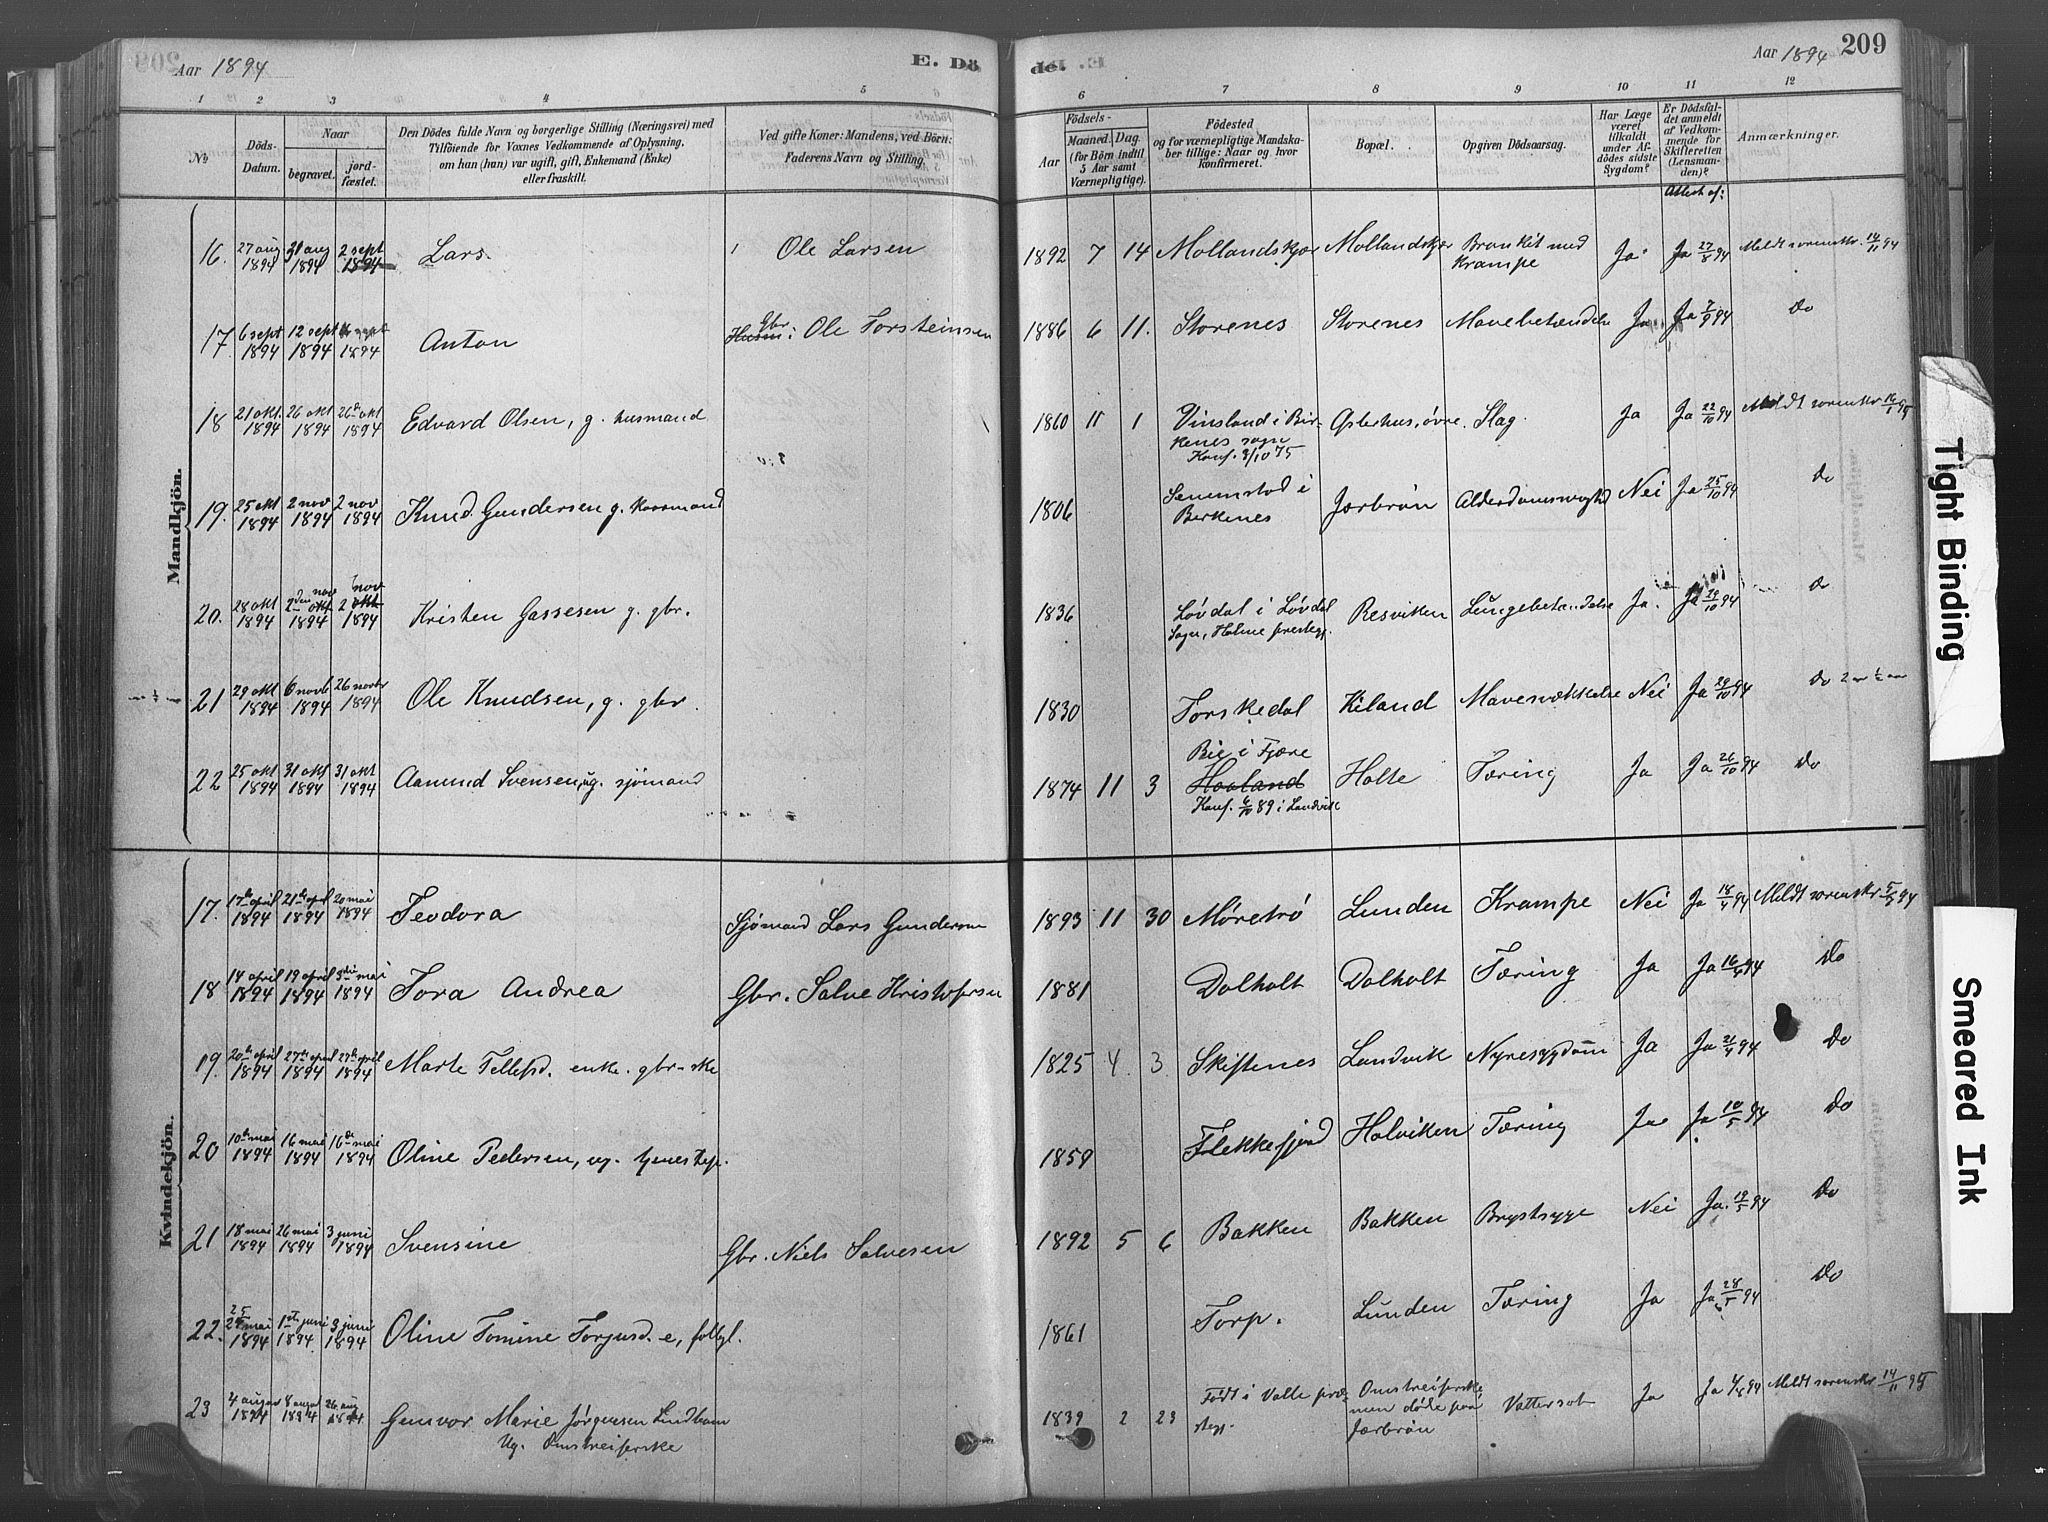 Aar 1894 E. Dö
1 2 3 4 5
No
Döds-Datum.
Naar
begravet.
jord-fæstet.
Den Dödes fulde Navn og borgerlige Stilling (Næringsvei) med
Tilföiende for Voxnes Vedkommende af Oplysning,
om han (hun) var ugift, gift, Enkemand (Enke)
eller fraskilt.
Ved gifte Koner: Mandens, ved Börn:
Faderens Navn og Stilling.
de. Aar 1894 209
6 7 8 9 10 11 12
Födsels-
Aar
Maaned. Dag.
(for Börn indtil
5 Aar samt
Værnepligtige).
Födested
og for værnepligtige Mandska-
ber tillige: Naar og hvor
konfirmeret.
Bopæl.
Opgiven Dödsaarsag.
Har Læge
været
tilkaldt
under Af-
dödes sidste
Sygdom?
Er Dödsfal-
det anmeldt
af Vedkom-
mende for
Skifteretten
(Lensman-
den)?
Attest af:
Anmærkninger.
Mandkjön.
16. 27 aug 1894 31 aug 1894 2 sept 1894 Lars. Ole Larsen 1892 7 14 Mollandskjær Mollandskjær Bronkit med Krampe Ja Ja 27/8 94 Meldt sorenskr. 14/11 94
17 6 sept 1894 12 sept 1894 1894 Anton Gbr. Husm: Ole Torsteinsen 1886 6 11. Storenes Storenes Mavebetændelse Ja Ja 7/9 94 Do
18 21 okt. 1894 26 okt 1894 26de okt 1894 Edvard Olsen, g. husmand 1860 11 1 Vinsland i Bir-
kenes sogn
Konf. 3/10 75 øvre. Slag. Ja Ja 22/10 94 Meldt sorenskr 16/1 95
19. 25 okt 1894 2 nov 1894 2 nov 1894 Knud Gundersen g. 1806 Senumstad i
Birkenes Jærbrøn Alderdomssvaghd Nei Ja 25/10 94 Do
20. 28 okt 1894 2den nov okt 1894 2 nov okt 1894 Kristen Gassesen g. gbr. 1836 Løvdal i Løvdal
Sogn, Holme prestegj. Resviken Lungebetændelse Ja. Ja 29/10 94 Do
21 29 okt 1894 6 novb 1894 26 novbr 1894 Ole Knudsen, g. gbr. 1830 Torskedal Kiland Mavesvækkelse Nei Ja 29/10 94 Do
22 25 okt 1894 31 okt 1894 31 okt 1894 Aamund Svensen, ug. sjömand 1874 11 3 Bie i Fjære
Hovland
Konf. 6/10 89 i Landvik Holte Tæring Ja Ja 26/10 94 Do
Kvindekjön.
17. 17de april 1894 21de april 1894 20 mai 1894 Teodora Sjømand Lars Gundersen 1893 11 30 Møretrø Lunden Krampe Nei Ja 18/4 94 Meldt sorenskr. 5/5 94
18 14 april 1894 19 april 1894 3die mai 1894 Tora Andrea Gbr. Salve Kristofersen 1881 Dolholt Dolholt Tæring Ja Ja 16/4 94 Do
19. 20de april 1894 27de april 1894 27de april 1894 Marte Tellefsd. enke. gbr-ske 1825 4. 3. Skiftenes Landvik Nyresygdom Ja Ja 21/4 94 Do
20 10de mai 1894 16 mai 1894 16de mai 1894 Oline Pedersen, ug. tjenestep. 1859 Flekkefjord Holviken Tæring Ja Ja 10/5 94 Do
21 18 mai 1894 26 mai 1894 3 juni 1894 Svensine Gbr. Niels Salvesen 1892 5 6 Bakken Bakken Brystsyge Nei Ja. 19/5 94 Do
22. 25 mai 1894 1ste juni 1894 3 juni 1894 Oline Tomine Torjusd. e, fattigl. 1861 Torp. Lunden Tæring Ja Ja 28/5 94 Do
23 4 august 1894 8 august 1894 26 aug 1894 Gunvor Marie Jörgensen Lindham
Ug. Omstreiferske 1839 2 23 Født i Valle præ-
stegj. Omstreiferske,
men døde paa
Jærbrøn Vattersot Ja Ja 4/8 94 Meldt sorenskr 14/11 95
Tight Binding
Smeared Ink